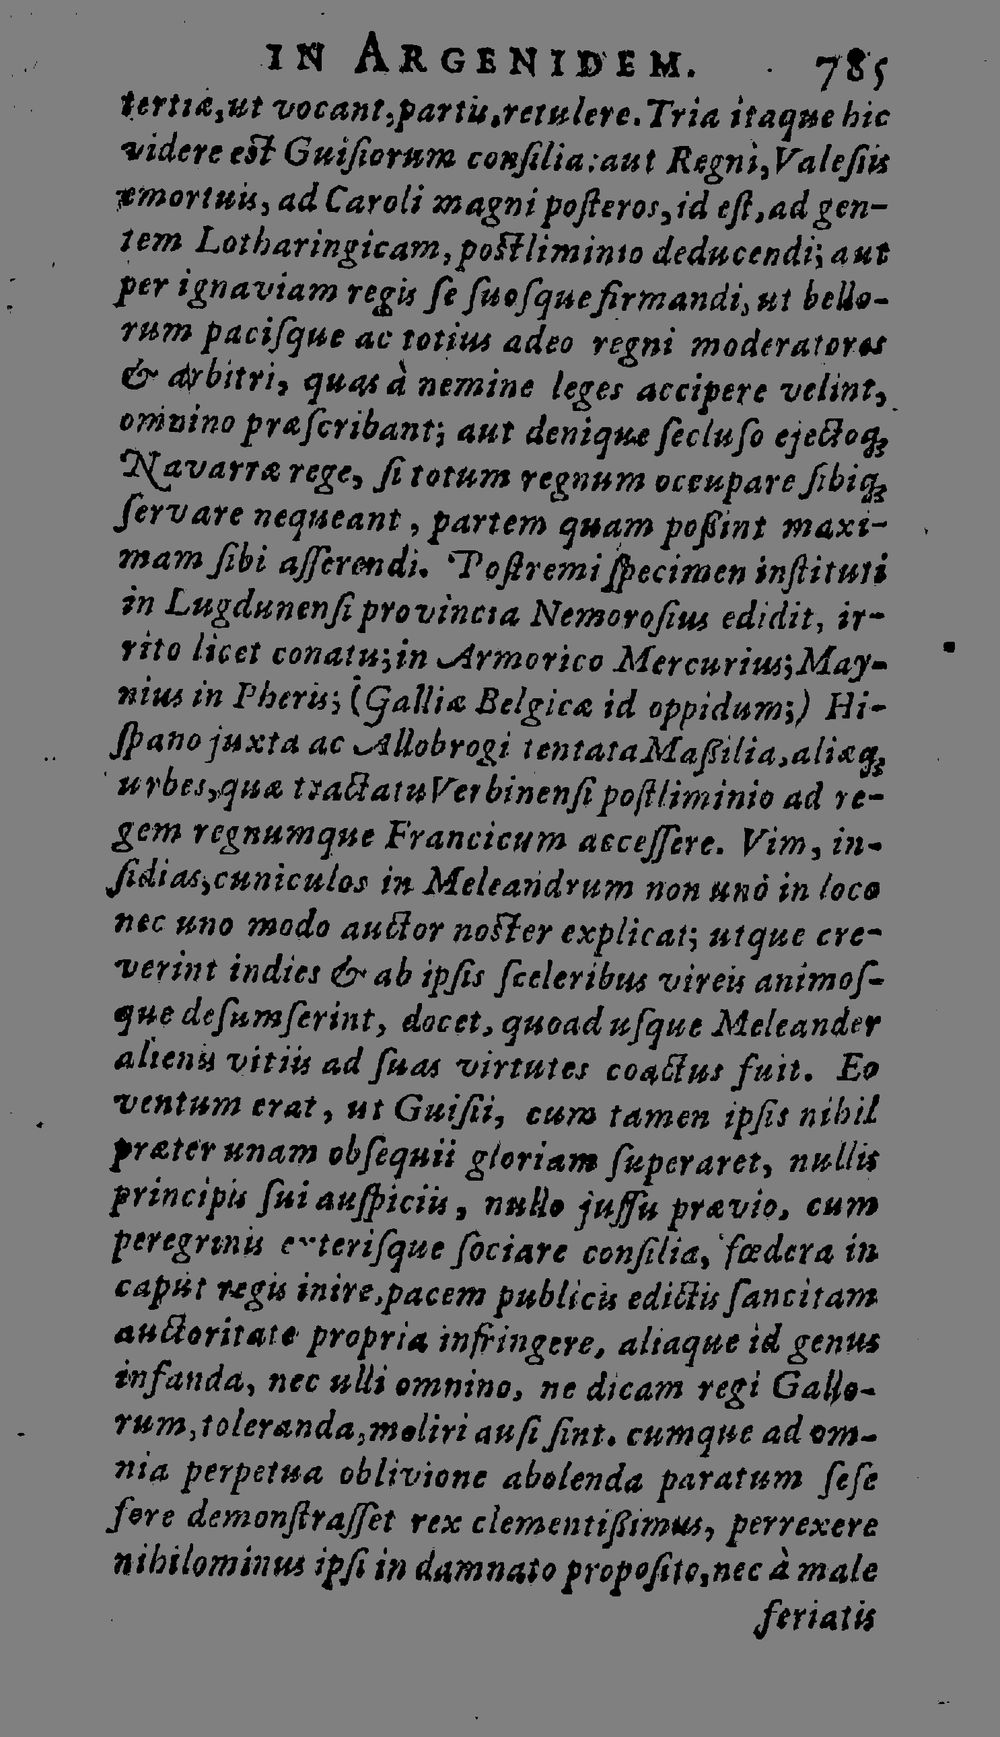 IN ARGENIDEM. 785
tertiæ, ut vocant, partis, retulere. Tria itaque hic
videre est Guisiorum consilia: aut Regni, Valesiis
emortuis, ad Caroli magni posteros, id est, ad gen-
tem Lotharingicam, postliminio deducendi; aut
per ignaviam regis se suosque firmandi, ut bello-
rum pacisque ac totius adeo regni moderatores
& arbitri, quas à nemine leges accipere velint,
omnino præscribant; aut denique secluso ejectoq;
Navarræ rege, si totum regnum occupare sibiq;
servare nequeant, partem quam poßint maxi-
mam sibi asserendi. Postremi specimen instituti
in Lugdunensi provincia Nemorosius edidit, ir-
rito licet conatu; in Armorico Mercurius; May-
nius in Pheris; (Galliæ Belgicæ id oppidum;) Hi-
spano juxta ac Allobrogi tentata Maßilia, aliæq;
urbes, quæ tractatu Verbinensi postliminio ad re-
gem regnumque Francicum accessere. Vim, in-
sidias, cuniculos in Meleandrum non uno in loco
nec uno modo auctor noster explicat; utque cre-
verint indies & ab ipsis sceleribus vireis animos-
que desumserint, docet, quoad usque Meleander
alienis vitiis ad suas virtutes coactus fuit. Eo
ventum erat, ut Guisii, cum tamen ipsis nihil
præter unam obsequii gloriam superaret, nullis
principis sui auspiciis, nullo jussu prævio, cum
peregrinis exterisque sociare consilia, fœdera in
caput regis inire, pacem publicis edictis sancitam
auctoritate propria infringere, aliaque id genus
infanda, nec ulli omnino, ne dicam regi Gallo-
rum, toleranda, moliri ausi sint. cumque ad om-
nia perpetua oblivione abolenda paratum sese
fore demonstrasset rex clementißimus, perrexere
nihilominus ipsi in damnato proposito, nec à male
feriatis